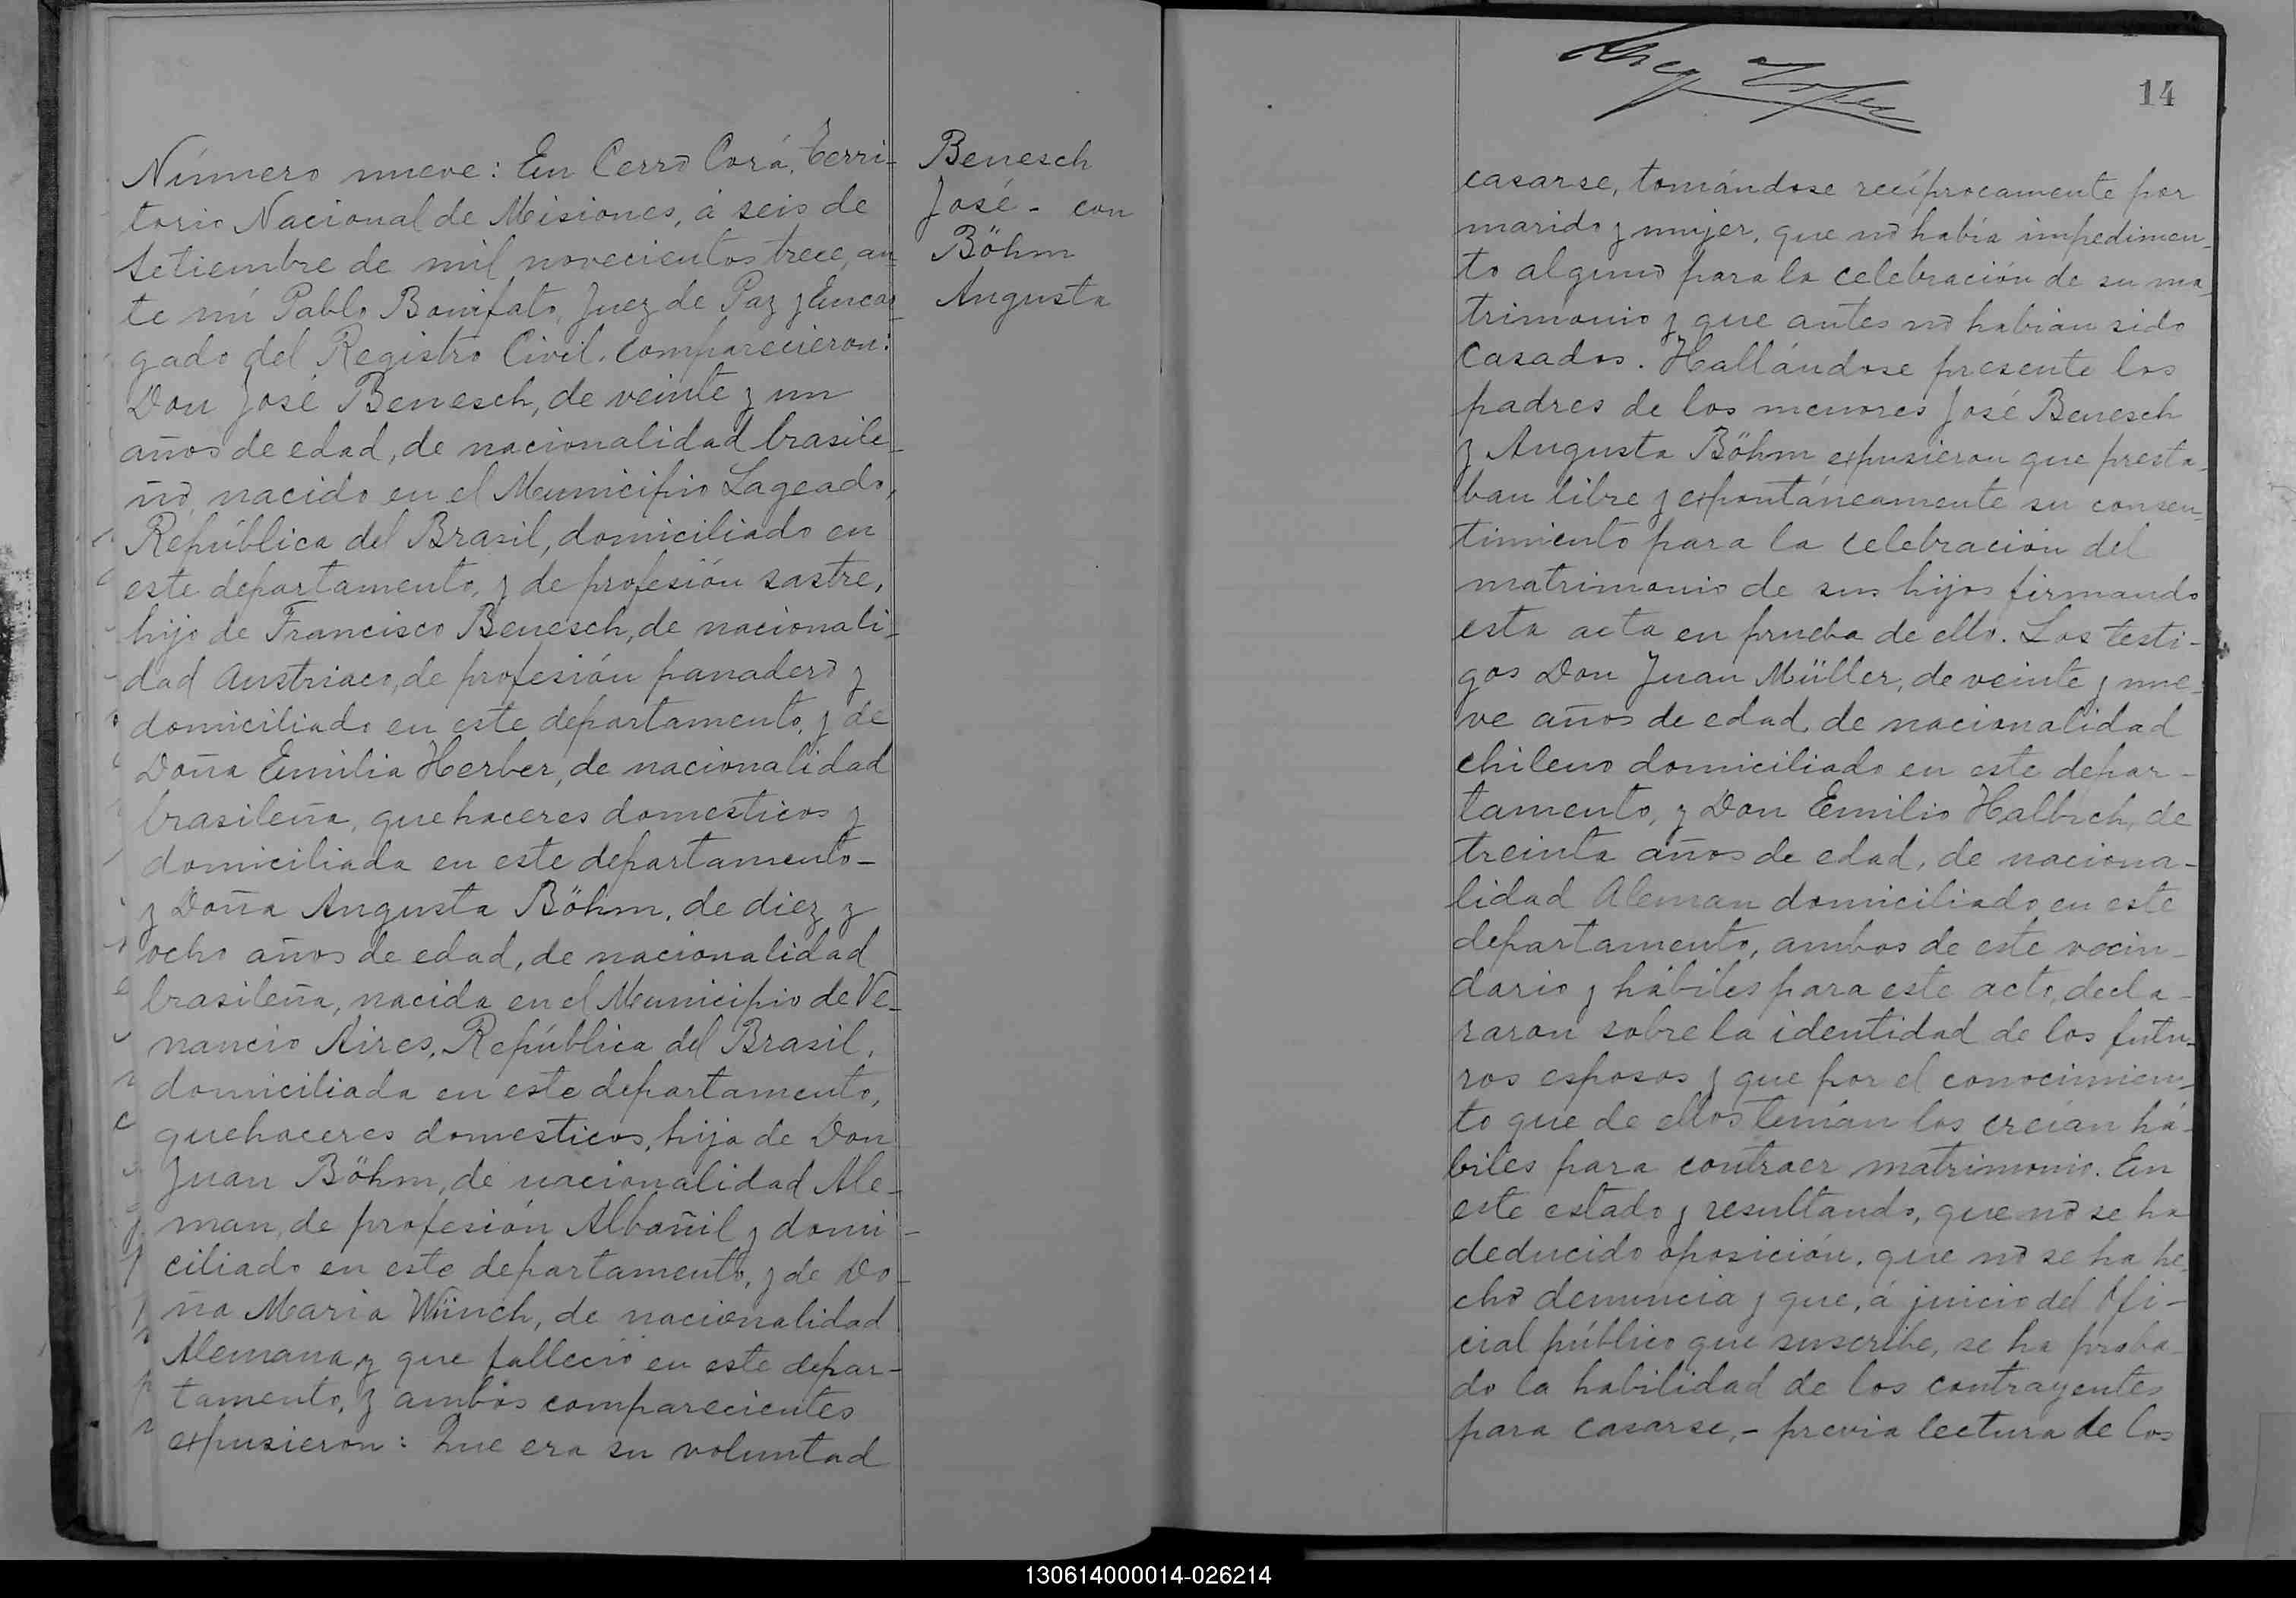 Número nueve: En Cerro Corá, Terri-
torio Nacional de Misiones, á seis de
Setiembre de mil novecientos trece, an-
te mí Pablo Bonifato, Juez de Paz y Encar-
gado del Registro Civil, comparecieron:
Don José Benesch, de veinte y un
años de edad, de nacionalidad brasile-
ño, nacido en el Municipio Lageado,
República del Brasil, domiciliado en
este departamento, y de profesión sastre,
hijo de Francisco Benesch, de nacionali-
dad Austriaco, de profesión panadero y
domiciliado en este departamento, y de
Doña Emilia Herber, de nacionalidad
brasileña, quehaceres domesticos y
domiciliada en este departamento-
y Doña Augusta Böhm, de diez y
ocho años de edad, de nacionalidad
brasileña, nacida en el Municipio de Ve-
nancio Aires, República del Brasil,
domiciliada en este departamento,
quehaceres domesticos, hija de Don
Juan Böhm, de nacionalidad Ale-
man, de profesión Albañil y domi-
ciliado en este departamento, y de Do-
ña Maria Wünch, de nacionalidad
Alemana, y que falleció en este depar-
tamento, y ambos comparecientes
expusieron: Que era su voluntad
Benesch
José - con
Böhm
Augusta
14
casarse, tomándose recíprocamente por
marido y mujer, que no había impedimen-
to alguno para la celebración de su ma-
trimonio y que antes no habían sido
casados. Hallándose presente los
padres de los menores José Benesch
y Augusta Böhm expusieron que presta-
ban libre y espontáneamente su consen-
timiento para la celebración del
matrimonio de sus hijos firmando
esta acta en prueba de ello. Los testi-
gos Don Juan Müller, de veinte y nue-
ve años de edad, de nacionalidad
chileno domiciliado en este depar-
tamento, y Don Emilio Halbich, de
treinta años de edad, de naciona-
lidad Aleman domiciliado en este
departamento, ambos de este vecin-
dario y hábiles para este acto, decla-
raron sobre la identidad de los futu-
ros esposos y que por el conocimien-
to que de ellos tenían los creían há-
biles para contraer matrimonio. En
este estado y resultando, que no se ha
deducido oposición, que no se ha he-
cho denuncia y que, á juicio del Ofi-
cial público que suscribe, se ha proba-
do la habilidad de los contrayentes
para casarse,- previa lectura de los
130614000014-026214